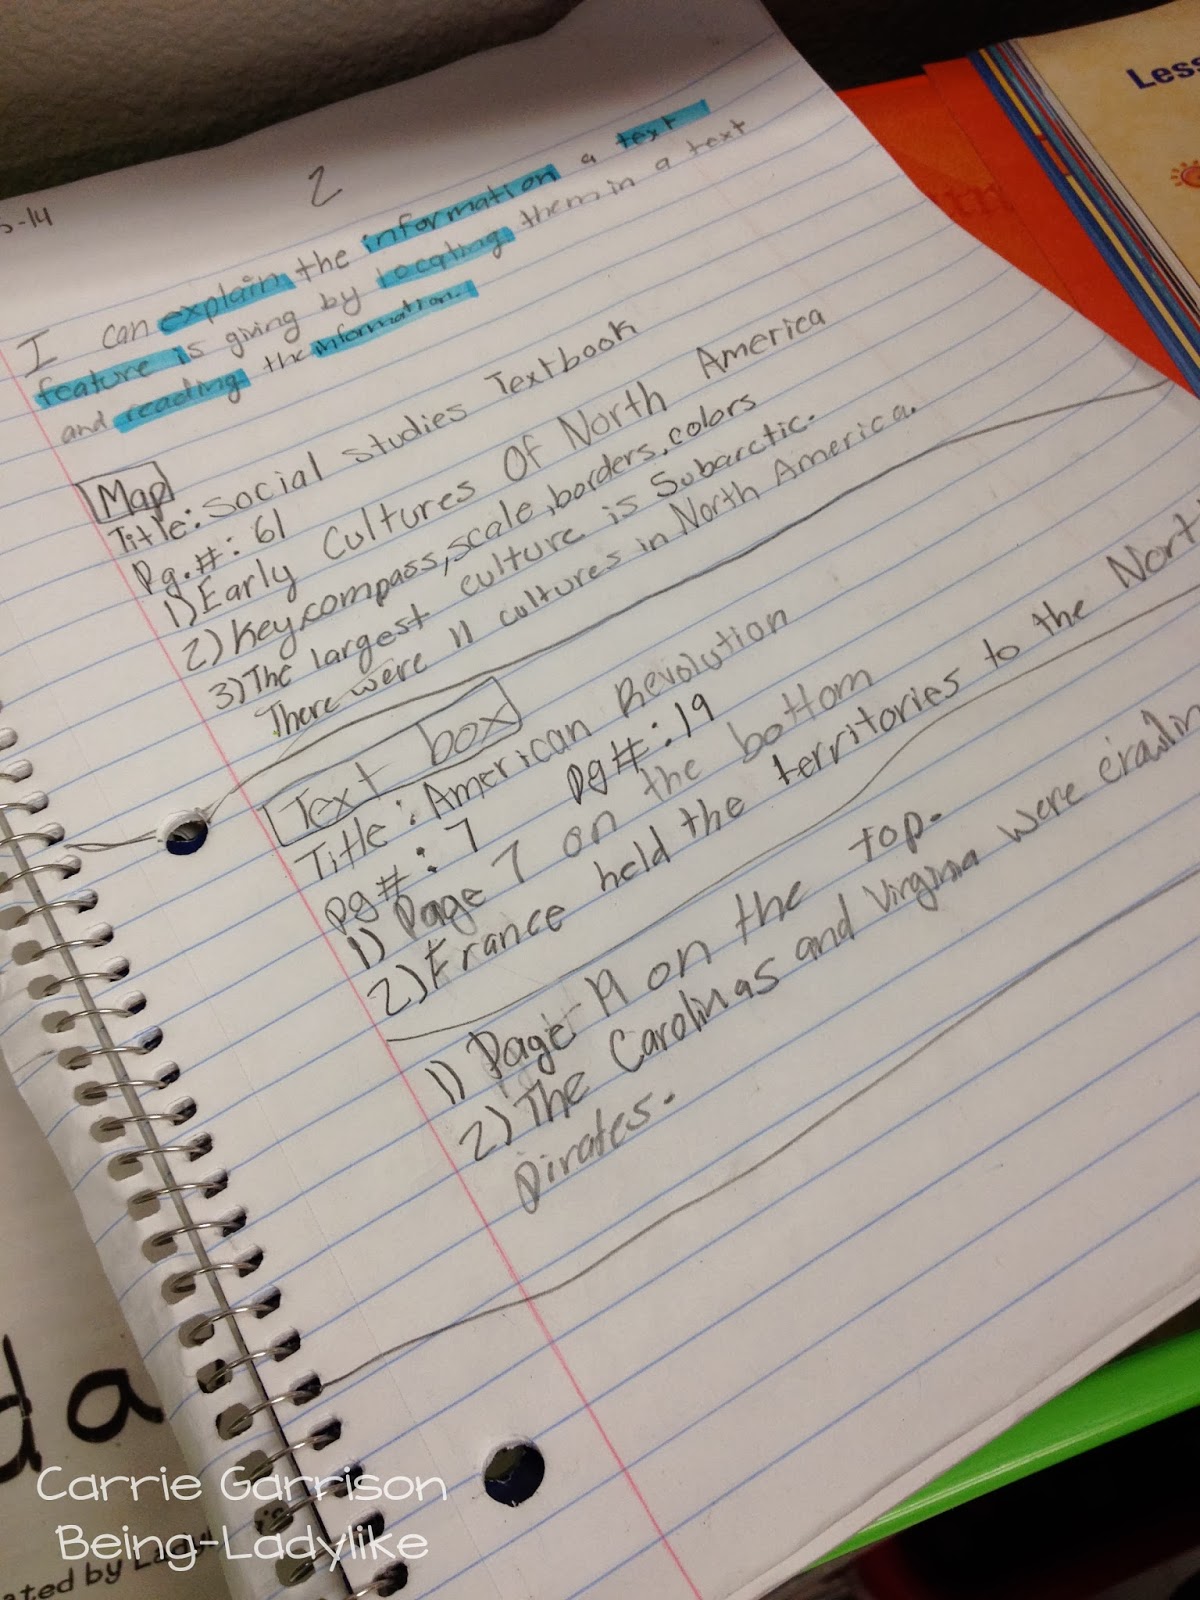 2
-14
I can explain the information a text
feature is giving by locating them in a text
and reading the information.
Map
Title: Social Studies Textbook
Pg.#: 61
1) Early Cultures Of North America
2) Key, compass, scale, borders, colors
3) The largest culture is Subarctic.
There were 11 cultures in North America.
Text box
Title: American Revolution
pg#: 7 pg#: 19
1) Page 7 on the bottom
2) France held the territories to the Nort
1) Page 19 on the top.
2) The Carolinas and Virginia were crawlin
Pirates.
Less
da
ated by
Carrie Garrison
Being-Ladylike